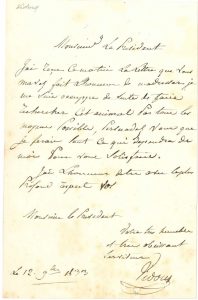 Vidocq
Monsieur Le Président
J'ai reçu ce matin la lettre que vous
m'avez fait l'honneur de m'adresser je
me suis occupé de suite de faire
rechercher cet animal par tous les
moyens possible, Persuadez vous que
je ferais tout ce qui dependra de
moi Pour vous Satisfaire.
J'ai L'honneur d'etre avec le plus
Profond respect
Monsieur le President
Votre tres humble
et bien obeissant
Serviteur
Vidocq
Le 12 9bre 1833